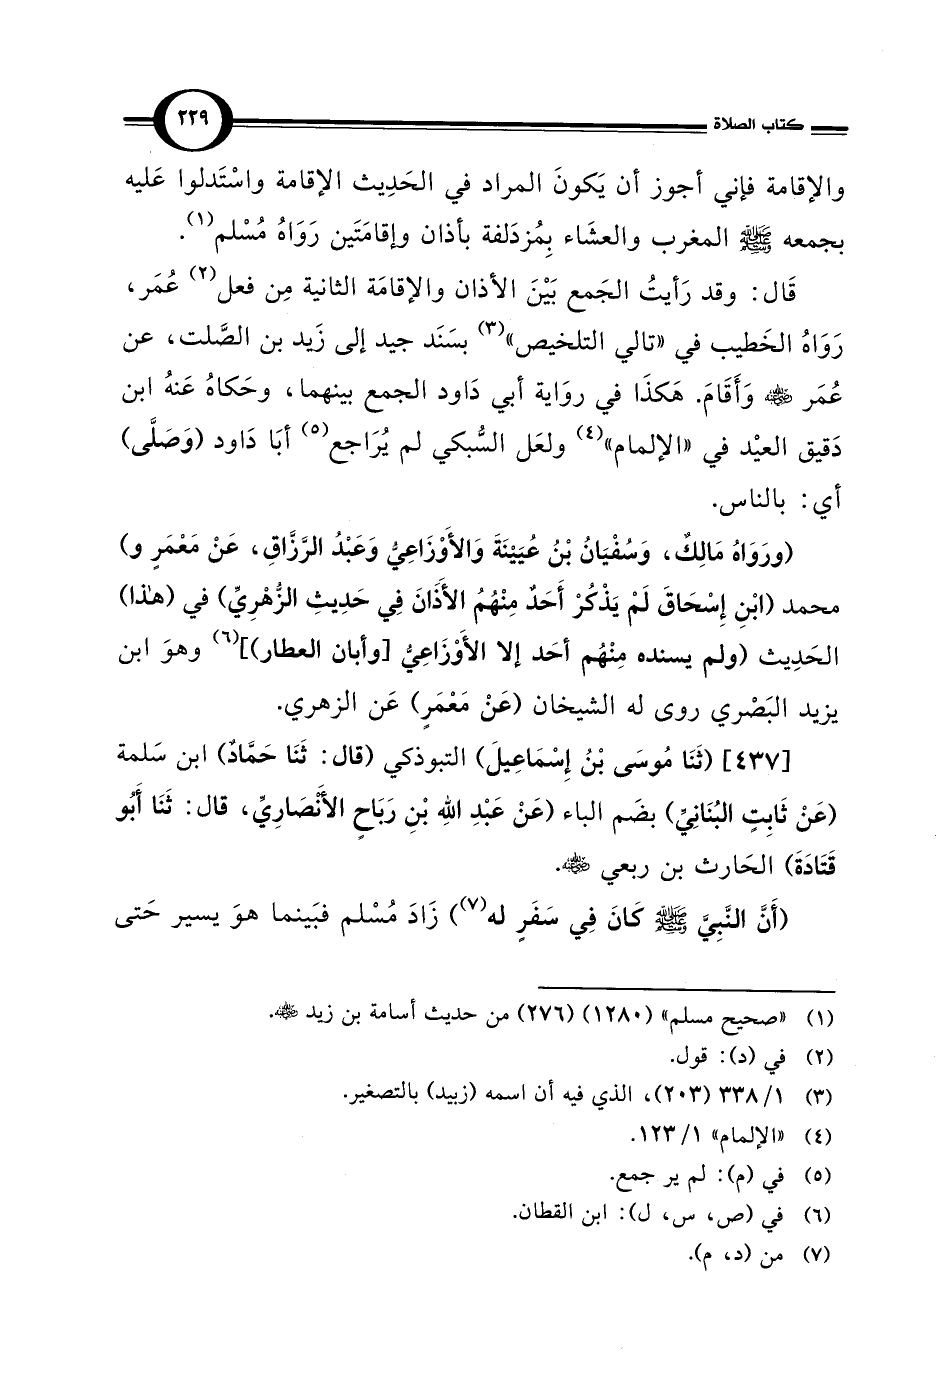 كتاب الصلاة ٢٢٩
والإقامة فإني أجوز أن يَكونَ المراد في الحَدِيث الإقامة واسْتَدلوا عَليه
بجمعه ﷺ المغرب والعشَاء بِمُزدَلفة بأذان وإقامَتَين رَوَاهُ مُسْلم(١).
قَال: وقد رَأيتُ الجَمع بَيْنَ الأذان والإقامَة الثانية مِن فعل(٢) عُمَر،
رَوَاهُ الخَطيب في «تالي التلخيص»(٣) بسَنَد جيد إلى زَيد بن الصَّلت، عن
عُمَر ﷺ وَأَقَامَ. هَكذَا في روَاية أبي دَاود الجمع بينهما، وحَكاهُ عَنهُ ابن
دَقيق العيْد في «الإلمام»(٤) ولعَل السُّبكي لم يُرَاجع(٥) أبَا دَاود (وَصَلَّى)
أي: بالناس.
(ورَوَاهُ مَالِكٌ، وَسُفْيَانُ بْنُ عُيَيْنَةَ وَالأَوْزَاعِيُّ وَعَبْدُ الرَّزَّاقِ، عَنْ مَعْمَرٍ و)
محمد (ابْنِ إِسْحَاقَ لَمْ يَذْكُرْ أَحَدٌ مِنْهُمُ الأَذَانَ فِي حَدِيثِ الزُّهْرِيِّ) في (هذا)
الحَدِيث (ولم يسنده مِنْهُم أحَد إلا الأَوْزَاعِيُّ [وأبان العطار)](٦) وهوَ ابن
يزيد البَصْري روى له الشيخان (عَنْ مَعْمَرٍ) عَن الزهري.
[٤٣٧] (ثَنَا مُوسَى بْنُ إِسْمَاعِيلَ) التبوذكي (قال: ثَنَا حَمَّادٌ) ابن سَلمة
(عَنْ ثَابِتٍ البُنَانِيِّ) بضَم الباء (عَنْ عَبْدِ اللهِ بْنِ رَبَاحٍ الأَنْصَارِيِّ، قال: ثَنَا أَبُو
قَتَادَةَ) الحَارث بن ربعي ﵁.
(أَنَّ النَّبِيَّ ﷺ كَانَ فِي سَفَرٍ له(٧)) زَادَ مُسْلم فبَينما هوَ يسير حَتى
(١) «صحيح مسلم» (١٢٨٠) (٢٧٦) من حديث أسامة بن زيد ﵁.
(٢) في (د): قول.
(٣) ١/ ٣٣٨ (٢٠٣)، الذي فيه أن اسمه (زبيد) بالتصغير.
(٤) «الإلمام» ١/ ١٢٣.
(٥) في (م): لم ير جمع.
(٦) في (ص، س، ل): ابن القطان.
(٧) من (د، م).